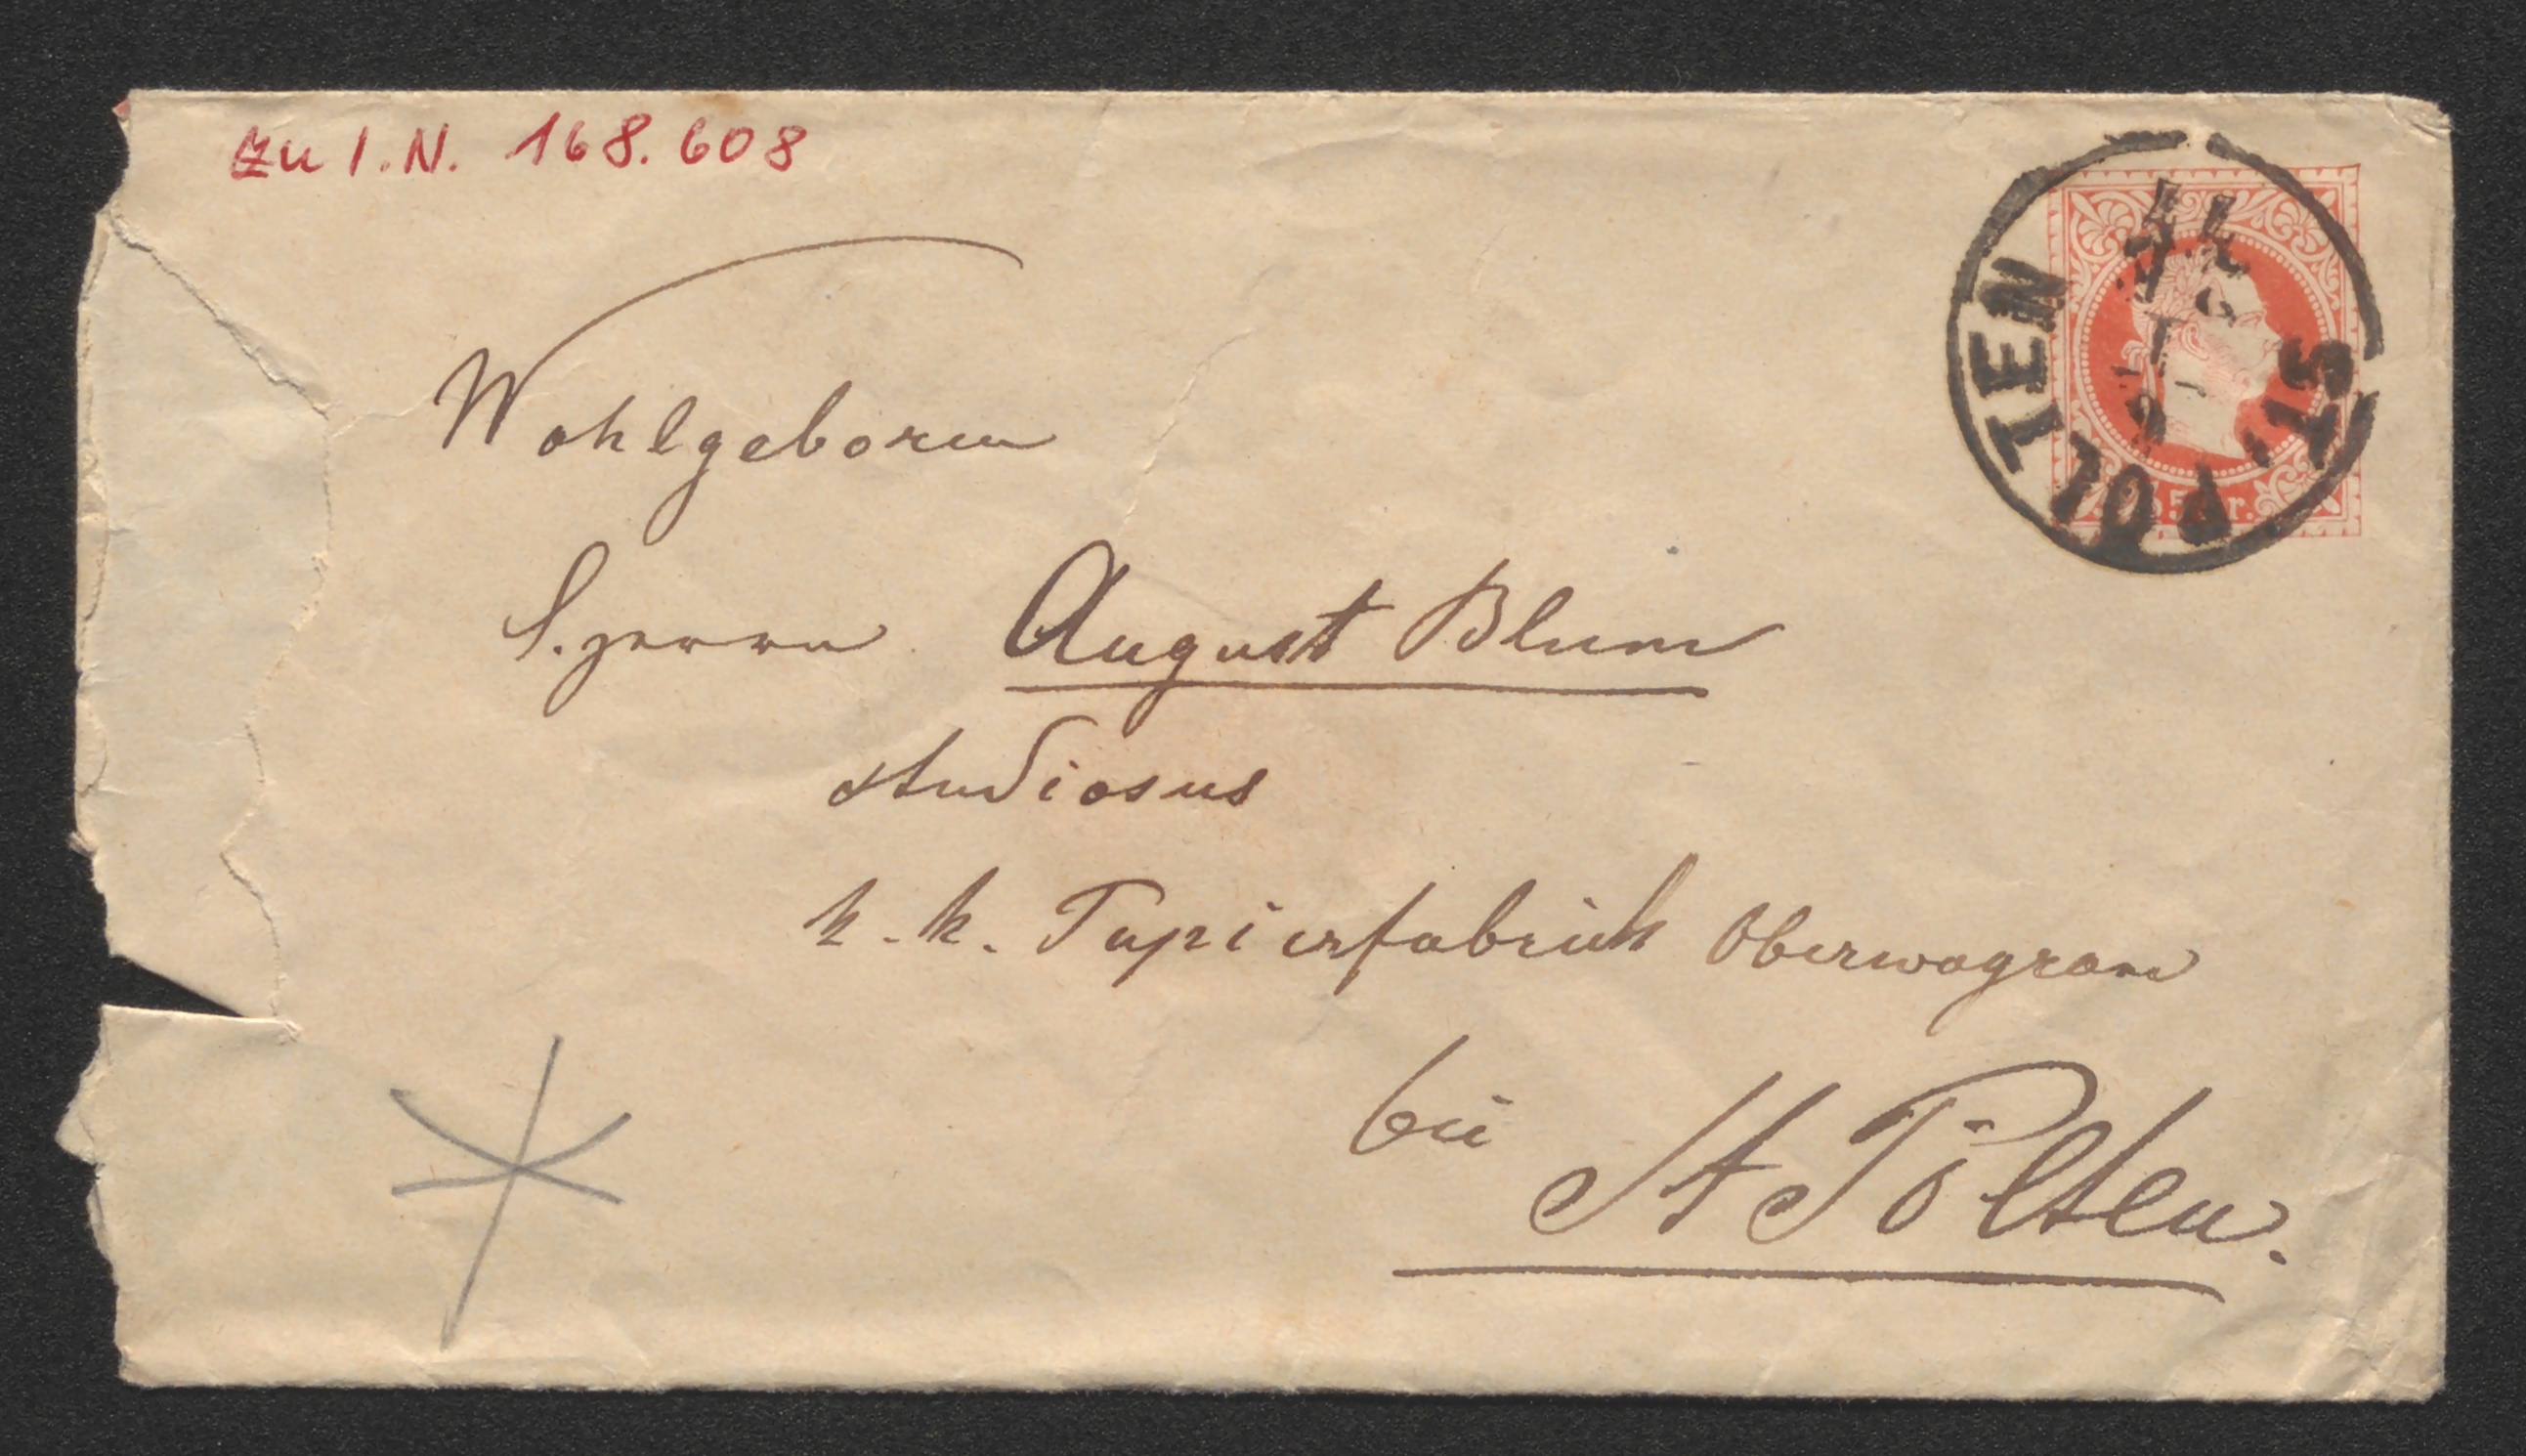 zu I.N. 168.608
ST. PÖLTEN
5 kr.
Wohlgeboren
Herrn August Blum
studiosus
k. k. Papierfabrick Oberwagram
bei
St Pölten.